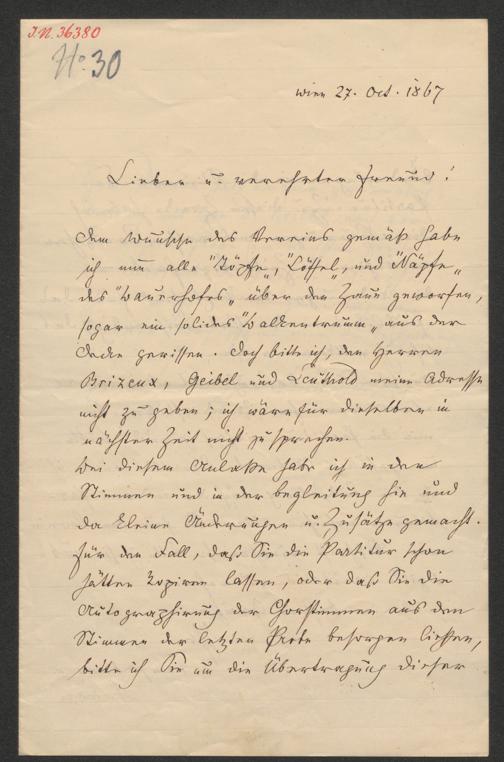 I.N. 36380
No 30
Wien 27. Oct. 1867
Lieber u. verehrter Freund!
Dem Wunsche des Vereins gemäß habe
ich nun alle "Töpfe", "Löffel", und "Näpfe"
des "Bauerhofes" über den Zaun geworfen,
sogar ein solides "Balkentrumm" aus der
Decke gerissen. Doch bitte ich, den Herren
Brizeux, Geibel und Leuthold meine Adresse
nicht zu geben; ich wäre für dieselben in
nächster Zeit nicht zu sprechen.
Bei diesem Anlaße habe ich in den
Stimmen und in der Begleitung hie und
da kleine Änderungen u. Zusätze gemacht.
Für den Fall, daß Sie die Partitur schon
hätten kopiren lassen, oder daß Sie die
Autographirung der Chorstimmen aus den
Stimmen der letzten Probe besorgen ließen,
bitte ich Sie um die Übertragung dieser